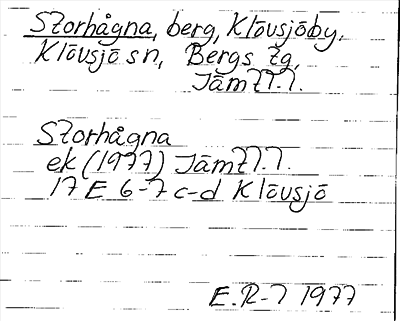 Storhågna, berg, Klövsjöby,
Klövsjö sn, Bergs tg,
Jämtl.l.
Storhågna
ek (1977) Jämtl.l.
17 E 6-7 c-d Klövsjö
E.R-l 1977